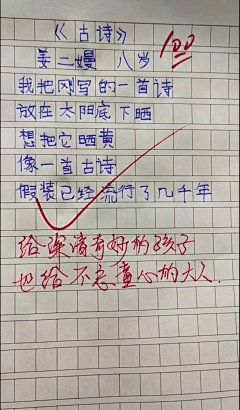 《古诗》
姜二嫚 八岁
100
我把刚写的一首诗
放在太阳底下晒
想把它晒黄
像一首古诗
假装已经流行了几千年
给深情有好的孩子
也给不忘童心的大人.